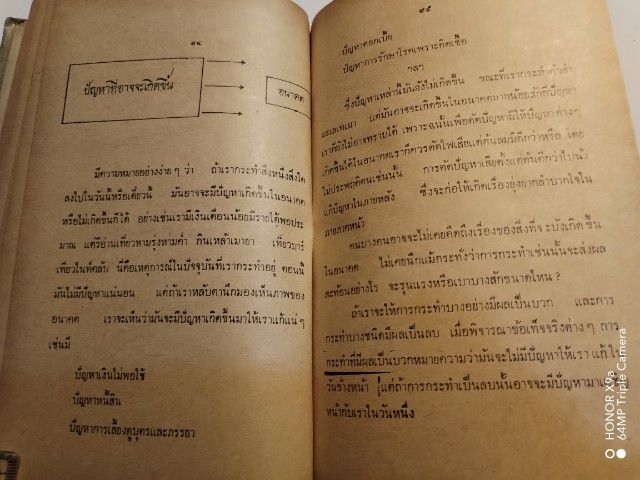 ๙๔
ปัญหาที่อาจจะเกิดขึ้น
อนาคต
มีความหมายอย่างง่าย ๆ ว่า ถ้าเรากระทำสิ่งหนึ่งสิ่งใด
ลงไปในวันนี้หรือเดี๋ยวนี้ มันอาจจะมีปัญหาเกิดขึ้นในอนาคต
หรือไม่เกิดขึ้นก็ได้ อย่างเช่นเรามีเงินเดือนน้อยมีรายได้พอประ
มาณ แต่ร่อนเที่ยวหามรุ่งหามค่ำ กินเหล้าเมายา เที่ยวบาร์
เที่ยวไนท์คลับ นี่คือเหตุการณ์ในปัจจุบันที่เรากระทำอยู่ ตอนนี้
มันไม่มีปัญหาแน่นอน แต่ถ้าเราหลับตานึกมองเห็นภาพของ
อนาคต เราจะเห็นว่ามันจะมีปัญหาเกิดขึ้นมาให้เราแก้แน่ ๆ
เช่นมี
ปัญหาเงินไม่พอใช้
ปัญหาหนี้สิน
ปัญหาการเลี้ยงดูบุตรและภรรยา
๙๕
ปัญหาดอกเบี้ย
ปัญหาการรักษาโรคเพราะติดเชื้อ
ฯลฯ
ซึ่งปัญหาเหล่านี้มันยังไม่เกิดขึ้น ขณะที่เรากระทำตัวสำ
มะเลเทเมา แต่มันอาจจะเกิดขึ้นในอนาคตมากน้อยสักกี่ปัญหา
เราก็ยังไม่อาจทราบได้ เพราะฉนั้นเพื่อตัดปัญหามิให้ปัญหาต่างๆ
เกิดขึ้นได้ในอนาคตเราก็ควรตัดไฟเสียแต่ต้นลมมิดีกว่าหรือ โดย
ไม่ประพฤติตนเช่นนั้น การตัดปัญหาเสียตั้งแต่ต้นดีกว่าไปนั่ง
แก้ปัญหาในภายหลัง ซึ่งจะก่อให้เกิดเรื่องยุ่งยากลำบากใจใน
ภายภาคหน้า
คนบางคนอาจจะไม่เคยคิดถึงเรื่องของสิ่งที่จะบังเกิดขึ้น
ในอนาคต ไม่เคยนึกแม้กระทั่งว่าการกระทำเช่นนั้นจะส่งผล
สะท้อนอย่างไร จะรุนแรงหรือเบาบางสักขนาดไหน ?
ถ้าเราจะให้การกระทำบางอย่างมีผลเป็นบวก และการ
กระทำบางชนิดมีผลเป็นลบ เมื่อพิจารณาข้อเท็จจริงต่าง ๆ การ
กระทำที่มีผลเป็นบวกหมายความว่ามันจะไม่มีปัญหาให้เรา แก้ใน
วันข้างหน้า แต่ถ้าการกระทำเป็นลบนั้นอาจจะมีปัญหามา
หน้ากับเราในวันหนึ่ง
HONOR X9a
64MP Triple Camera